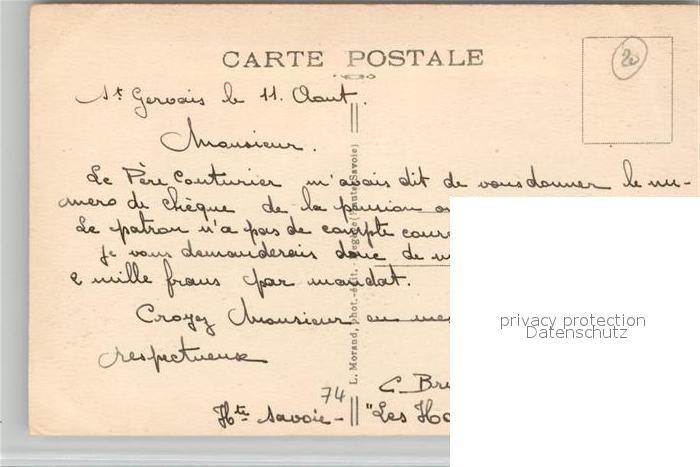 CARTE POSTALE
20
St Gervais le 11. Aout.
Monsieur.
Le Père Couturier m'avais dit de vous donner le nu-
mero de chèque de la pension
Le patron n'a pas de compte cour
je vous demanderais donc de
mille frans par mandat.
Croyez Monsieur en mes
respectueux
C. Bru
74
Hte Savoie - "Les Ho
L. Morand, phot.-édit. - Megève (Haute-Savoie)
privacy protection
Datenschutz